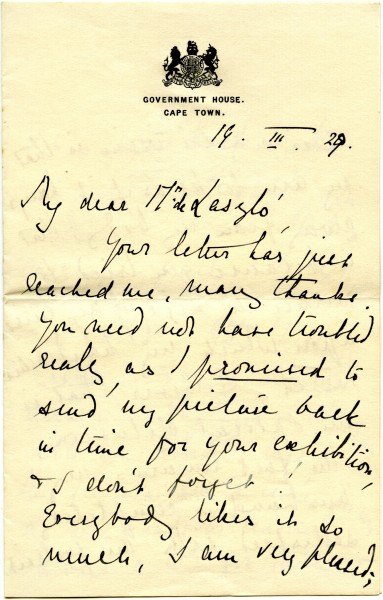 GOVERNMENT HOUSE.
CAPE TOWN.
19. III. 29.
My dear Mr de László
Your letter has just
reached me, many thanks.
You need not have troubled
really as I promised to
send my picture back
in time for your exhibition,
& I don't forget!
Everybody likes it so
much, I am very pleased,